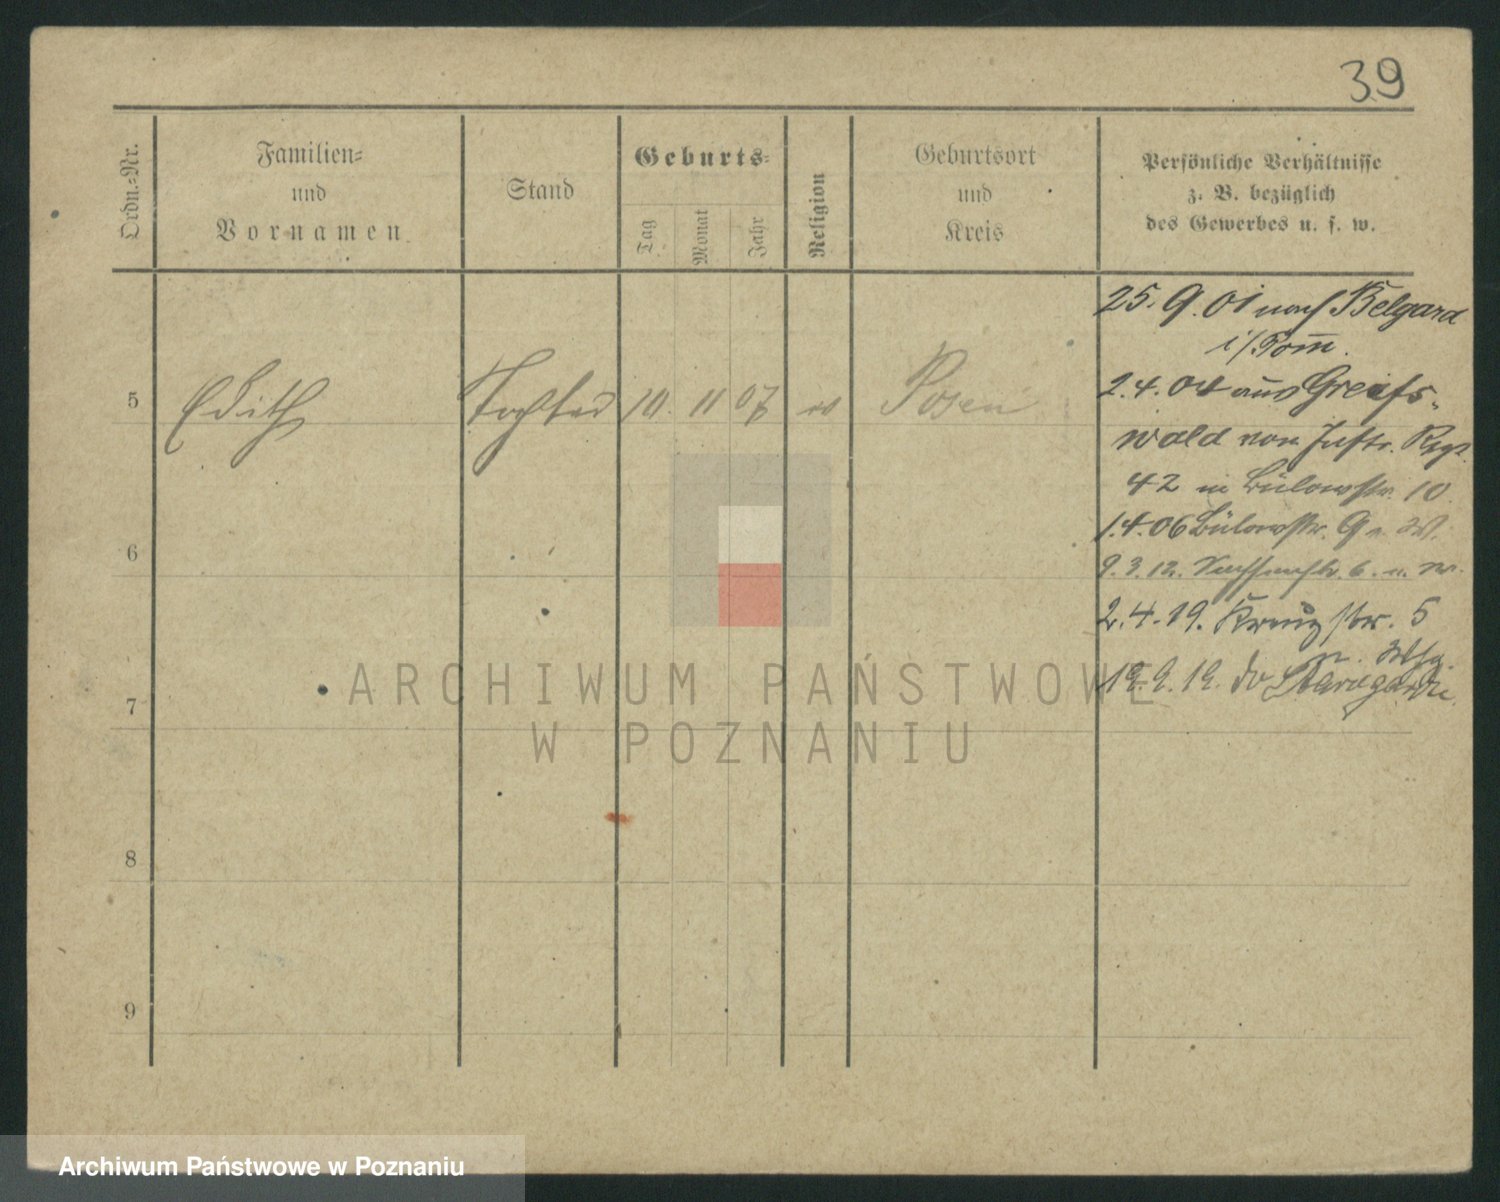 39
Ordn.-Nr.
Familien-
und
Vornamen
Stand
Geburts-
Tag
Monat
Jahr
Religion
Geburtsort
und
Kreis
Persönliche Verhältnisse
z. B. bezüglich
des Gewerbes u. s. w.
25. 9. 01 nach Belgard
i/Pom.
5 Edith Tochter 10. 11 07 ev Posen
2. 4. 04 aus Greifs-
wald von Inftr. Regt.
42 in Bülowstr. 10
1. 4. 06 Bülowstr. 9 n. W.
6
9. 3. 12. 6. n. W.
2. 4. 19. Kreuzstr. 5
n. Whg.
7
19. 9. 19. do Starogardu
8
9
ARCHIWUM PAŃSTWOWE
W POZNANIU
Archiwum Państwowe w Poznaniu